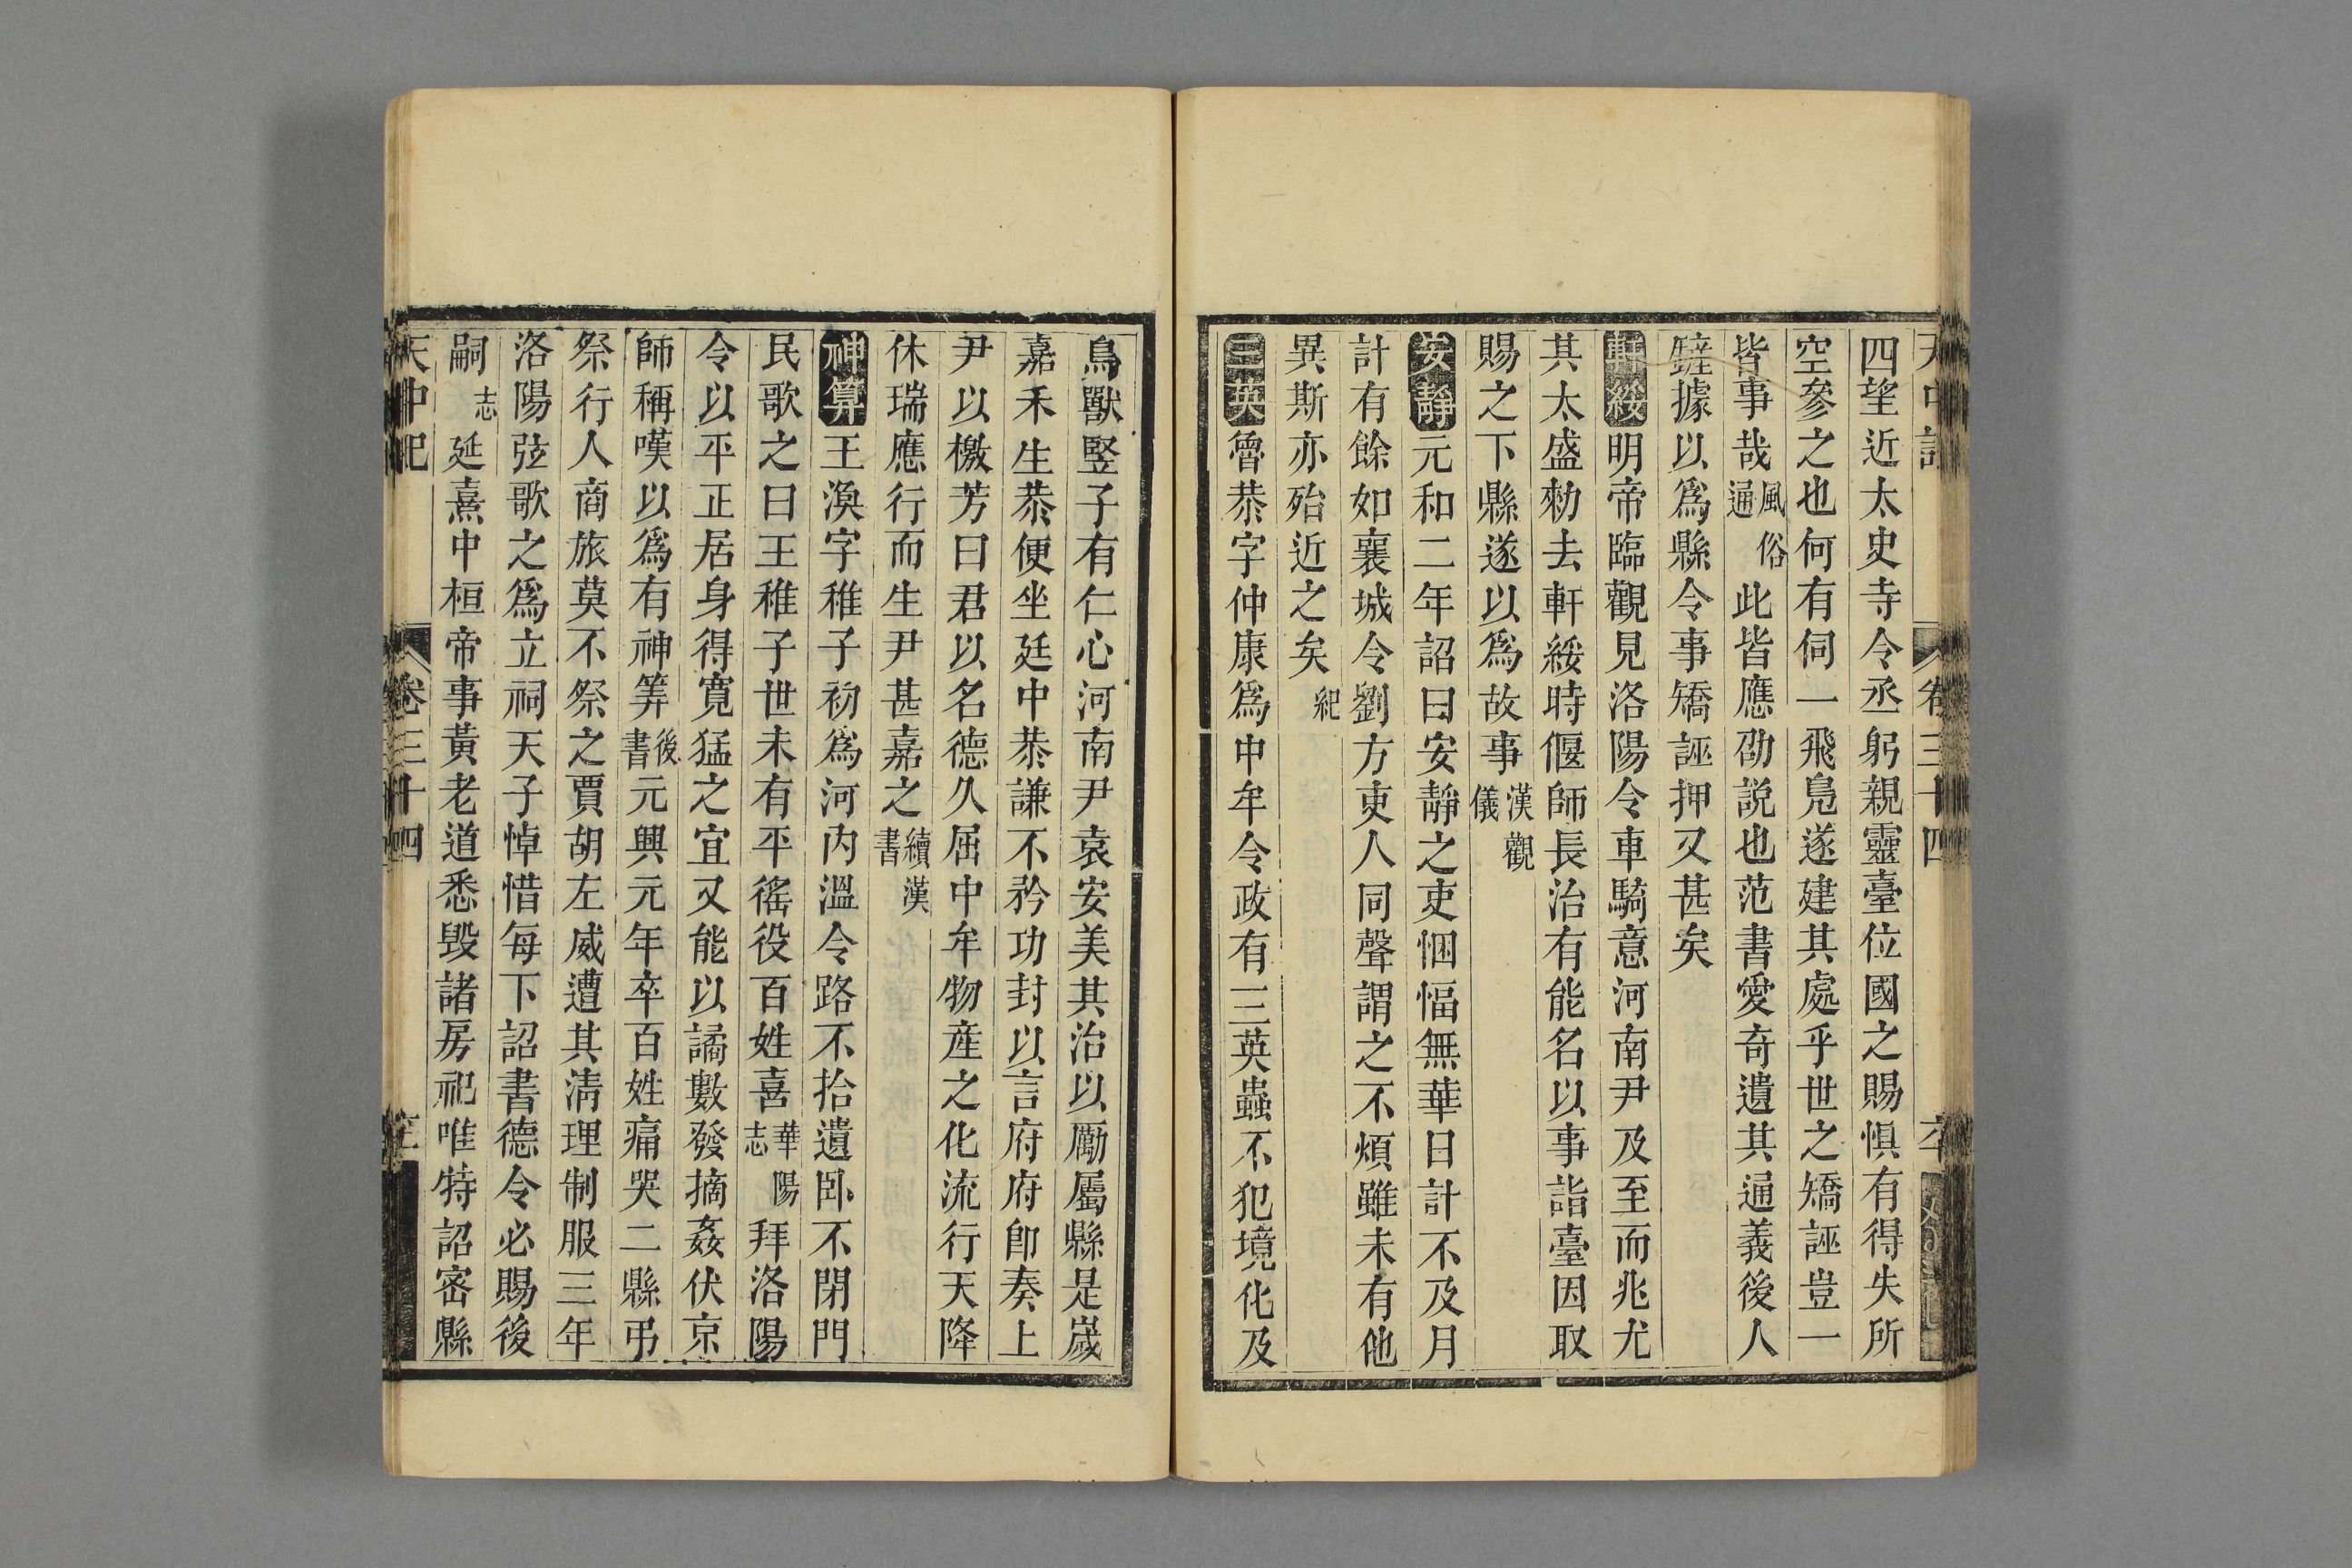 四望近太史寺令丞躬親靈臺位國之賜惧有得失所
空參之也何有伺一飛鳬遂建其處乎世之矯誣豈一
皆事哉風俗通此皆應劭説也范書愛奇遺其通義後人
據以爲縣令事矯誣押又甚矣
軒綏明帝臨觀見洛陽令車騎意河南尹及至而非尤
其太盛勑去軒綏時偃師長治有能名以事詣臺因取
賜之下縣遂以爲故事漢觀儀
安靜元和二年詔曰安靜之吏悃愊無華日計不及月
計有餘如襄城令劉方吏人同聲謂之不煩雖未有他
異斯亦殆近之矣紀
三英魯恭字仲康爲中牟令政有三英蟲不犯境化及
鳥獸竪子有仁心河南尹袁安美其治以勵屬縣是嵗
嘉禾生恭便坐廷中恭謙不矜功封以言府府卽奏上
尹以檄芳曰君以名德久屈中牟物産之化流行天降
休瑞應行而生尹甚嘉之續漢書
神算王渙字稚子初爲河内溫令路不拾遺卧不閉門
民歌之曰王稚子世未有平徭役百姓喜華陽志拜洛陽
令以平正居身得寛猛之宜又能以譎數發摘姦伏京
師稱嘆以爲有神筭後書元興元年卒百姓痛哭二縣弔
祭行人商旅莫不祭之賈胡左威遭其淸理制服三年
洛陽弦歌之爲立祠天子悼惜每下詔書德令必賜後
嗣志延熹中桓帝事黃老道悉毁諸房祀唯特詔密縣
天中記 卷三十四